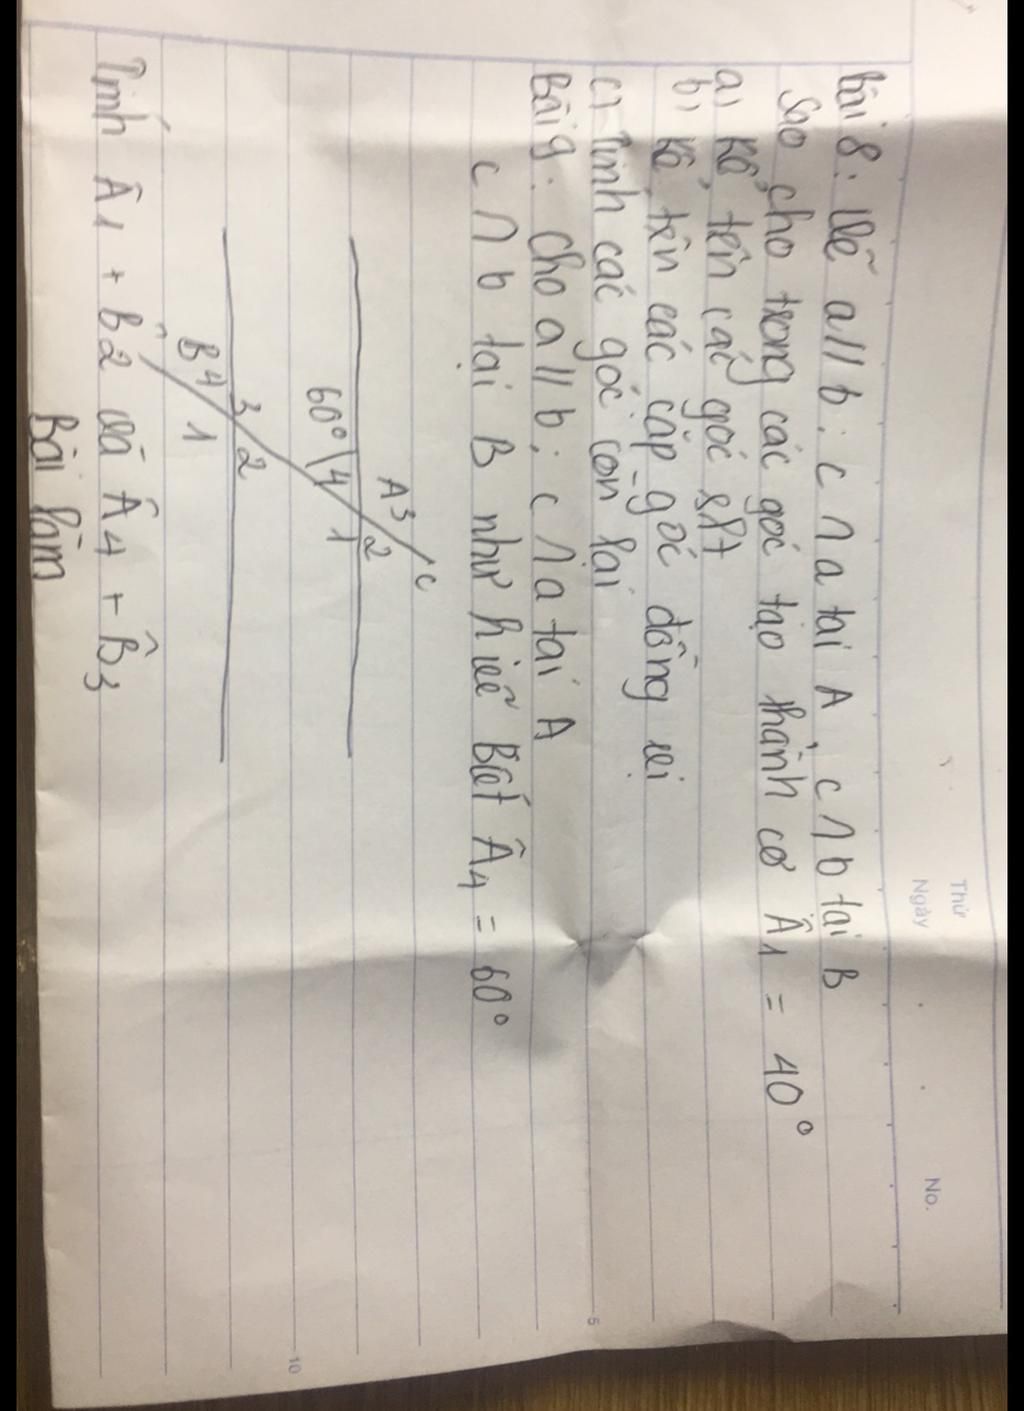 Thứ
Ngày
No.
Bài 8: Vẽ a // b; c ∩ a tại A c ∩ b tại B
Sao cho trong các góc tạo thành có Â1 = 40°
a) Kể tên các góc slt
b) Kể tên các cặp góc đồng vị
c) Tính các góc còn lại
Bài 9: cho a // b; c ∩ a tại A
c ∩ b tại B như hiẽ Biết Â4 = 60°
c
A 3 2
60° 4 1
5
3 2
B 4 1
10
Tính Â1 + B̂2 và Â4 + B̂3
Bài làm